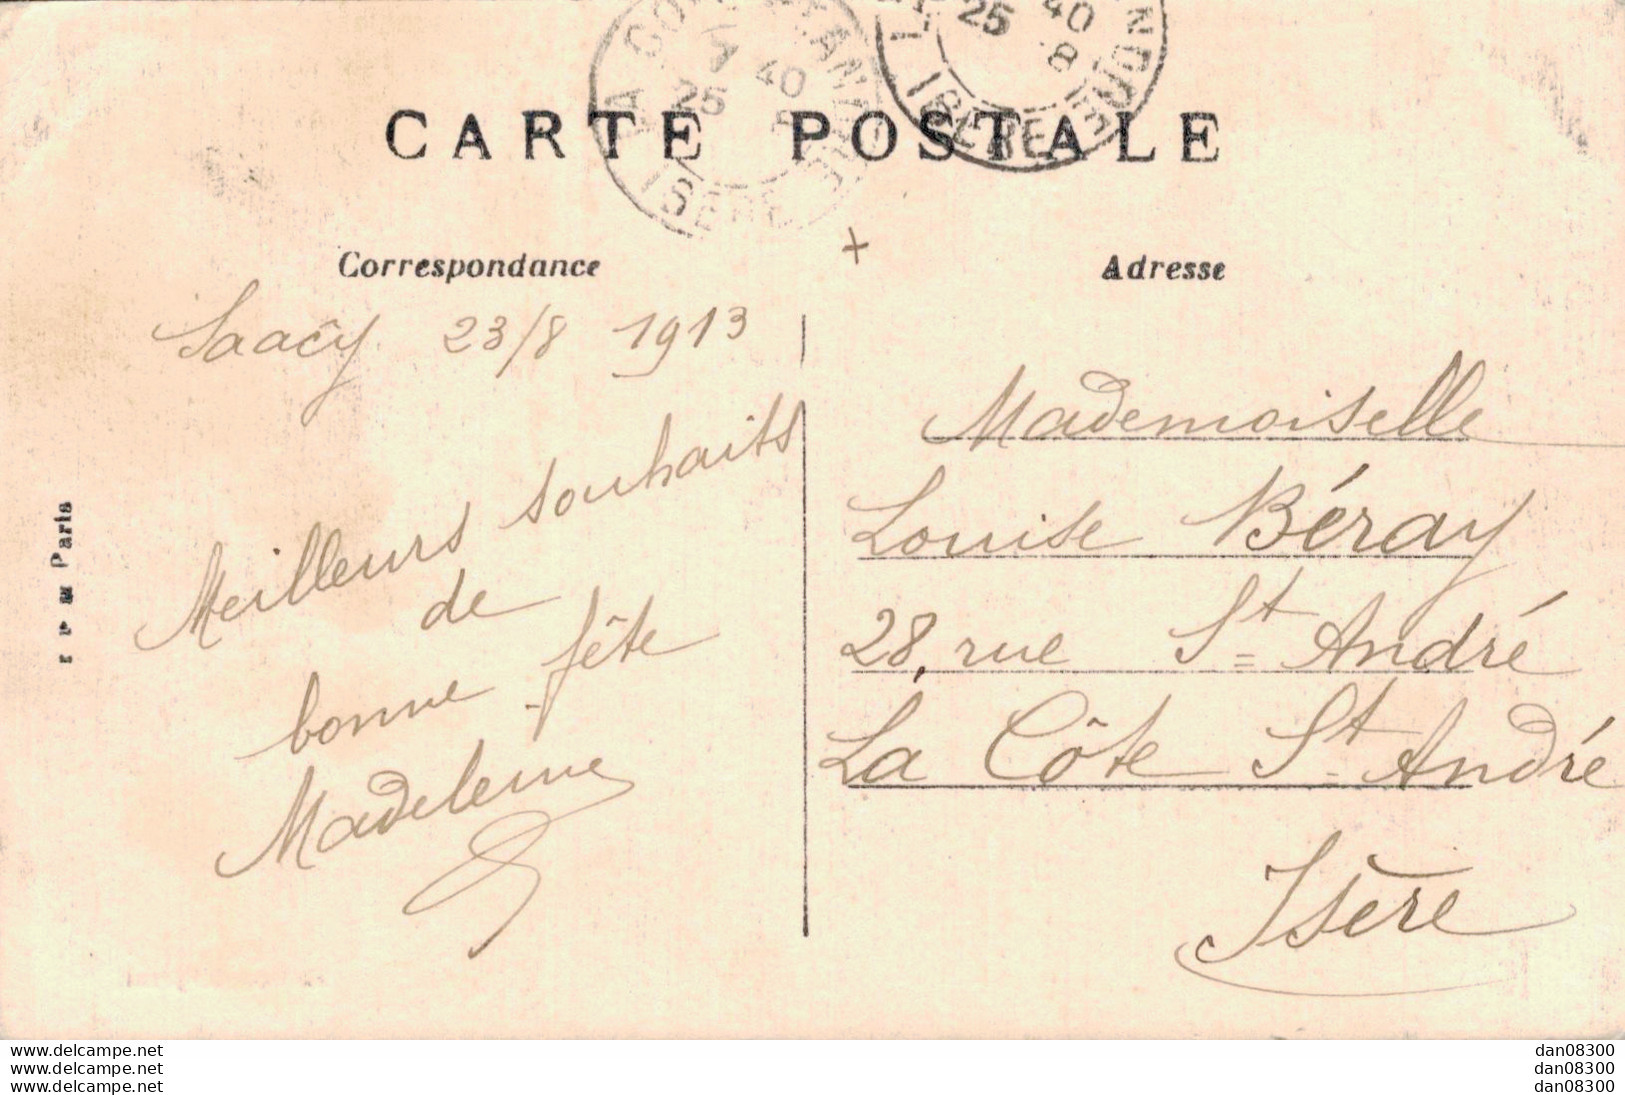 CARTE POSTALE
Correspondance
Adresse
Saacy 23/8 1913
Meilleurs souhaits
de
bonne fête
Madeleine
Mademoiselle
Louise Béray
28, rue St André
La Côte St André
Isère
Paris
25 40
8
ISERE
25 40
ISERE
www.delcampe.net
www.delcampe.net
www.delcampe.net
dan08300
dan08300
dan08300